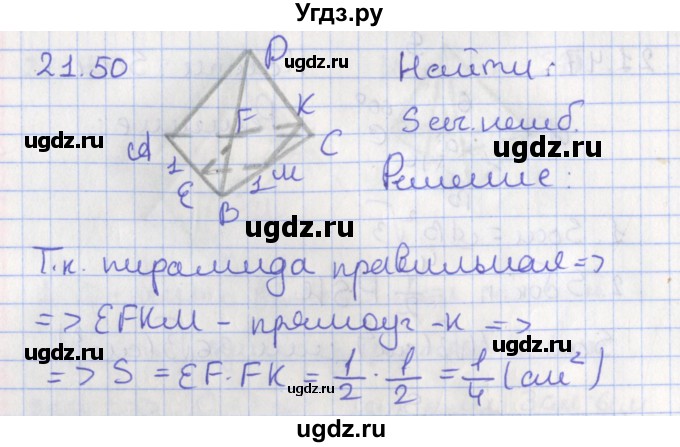 Угдз.ру
21.50
Найти:
D
F
K
A
C
1
E
B
1
M
Sсеч. наиб.
Решение:
Т.к. пирамида правильная =>
=> EFKM - прямоуг-к =>
=> S = EF·FK = 1/2 · 1/2 = 1/4 (см²)
ugdz.ru
ugdz.ru
ugdz.ru
ugdz.ru
ugdz.ru
ugdz.ru
ugdz.ru
ugdz.ru
ugdz.ru
ugdz.ru
ugdz.ru